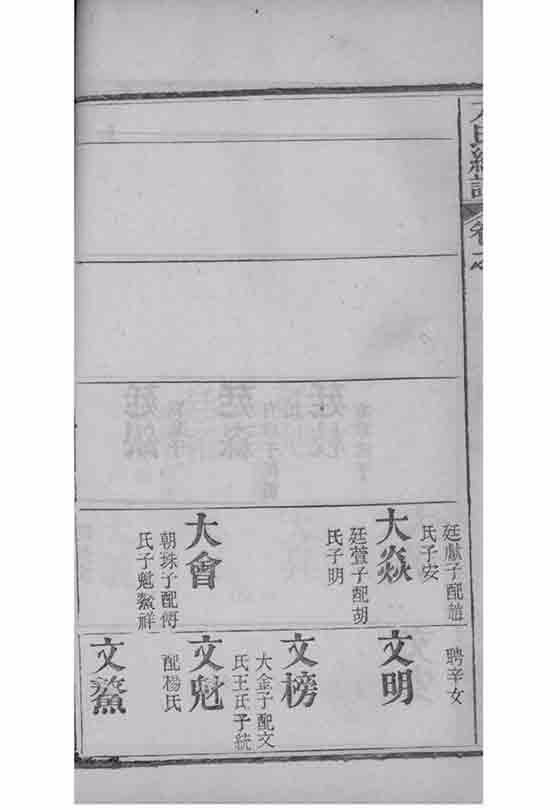 氏子安
大焱
廷萱子配胡
氏子明
大會
朝珠子配傅
氏子魁鰲祥
聘辛女
文明
文榜
大金子配文
氏王氏子統
文魁
配楊氏
文鰲